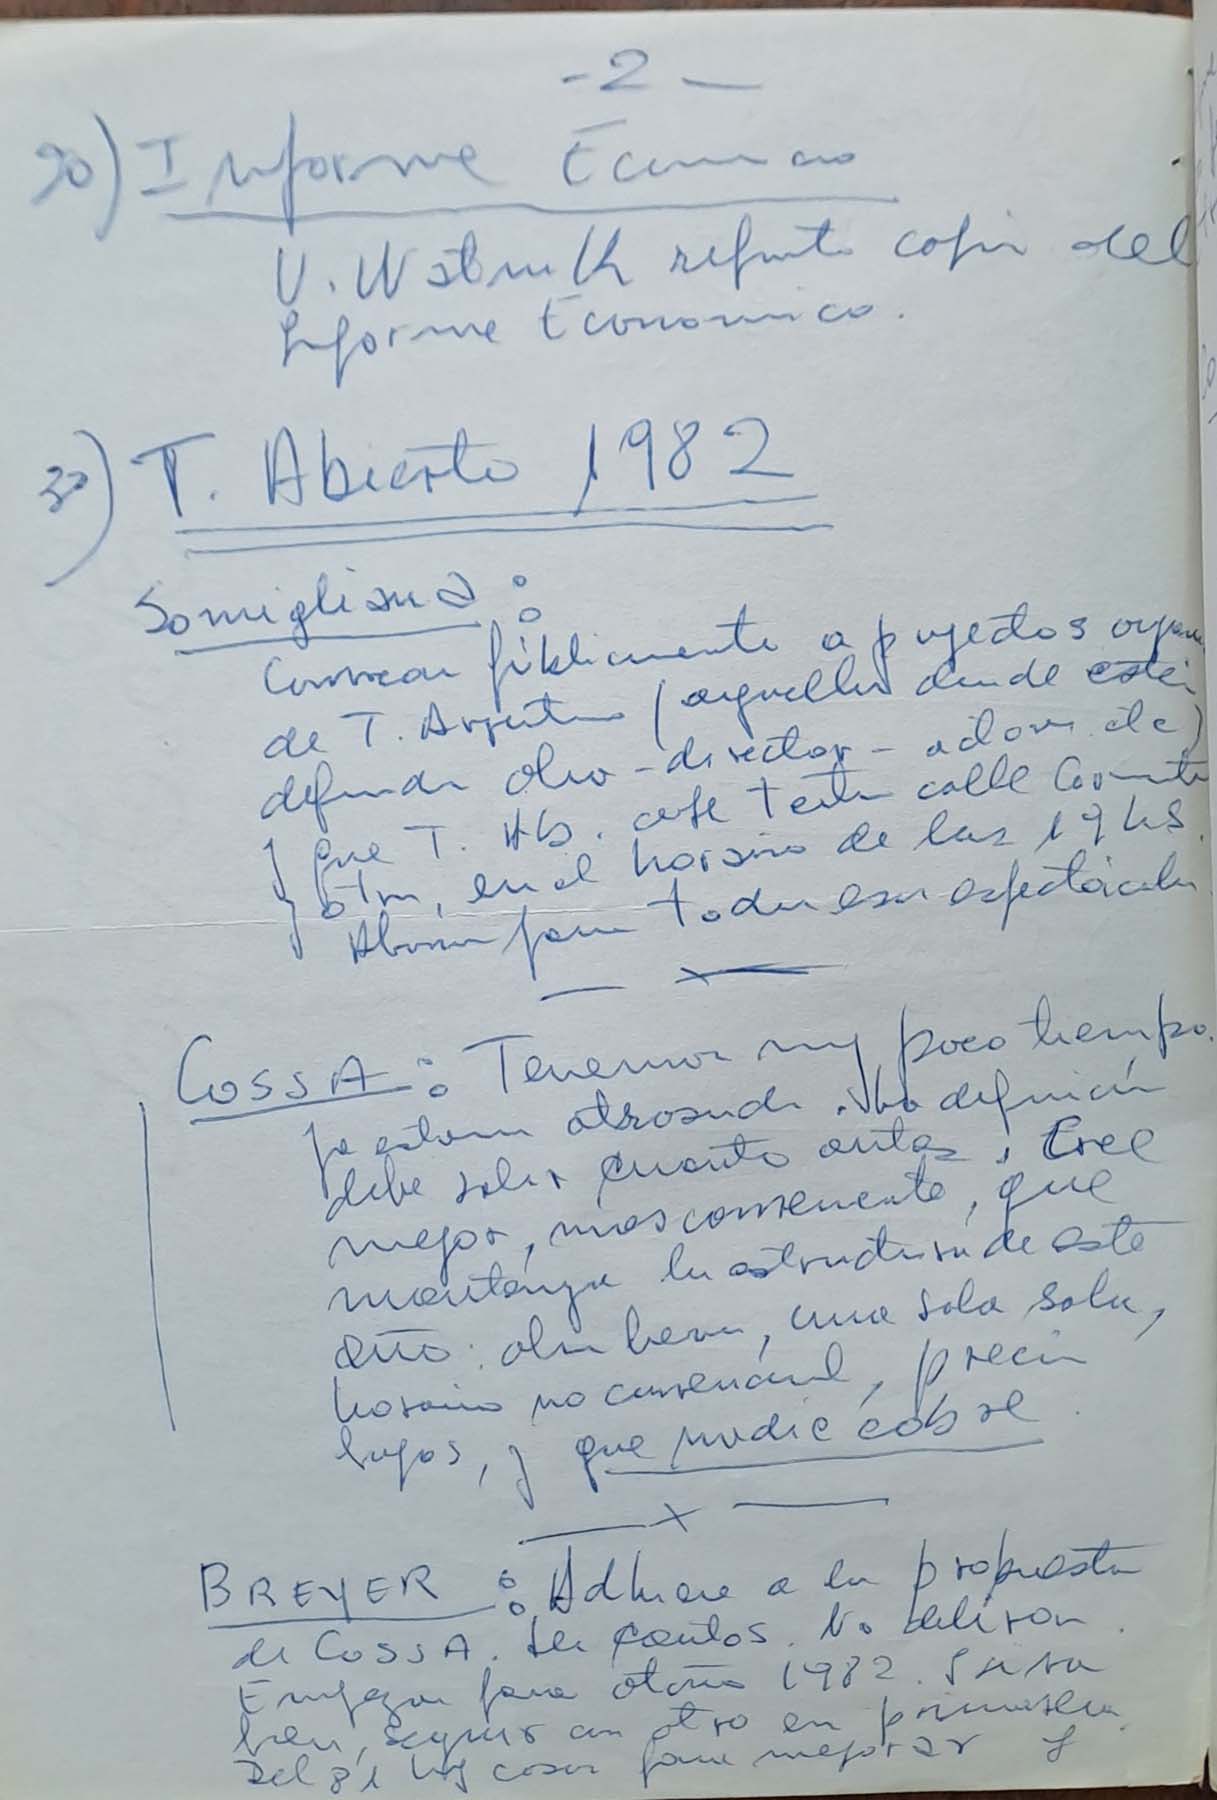 - 2 -
2º) Informe Económico
V. Watnik reparte copia del
Informe Económico.
3º) T. Abierto 1982
Somigliana:
Convocar públicamente a proyectos organi
de T. Argentino (aquellos donde esté
definida obra - director - actores etc)
y que T. Ab. teatro calle Corrientes
otro, en el horario de las 19 hs.
Abono para todos esos espectáculos.
— x —
COSSA: Tenemos muy poco tiempo.
Ya estamos atrasados. Una definición
debe salir cuanto antes. Cree
mejor, mas conveniente, que
mantenga la estructura de este
año: obra breve, una sola sala,
horario no comercial, precios
bajos, y que nadie cobre.
— x —
BREYER: Adhiere a la propuesta
de COSSA. Ser cautos. No delirar.
Empezar para otoño 1982. Si va
bien, seguir con otro en primavera.
Del 81 hay cosas para mejorar y